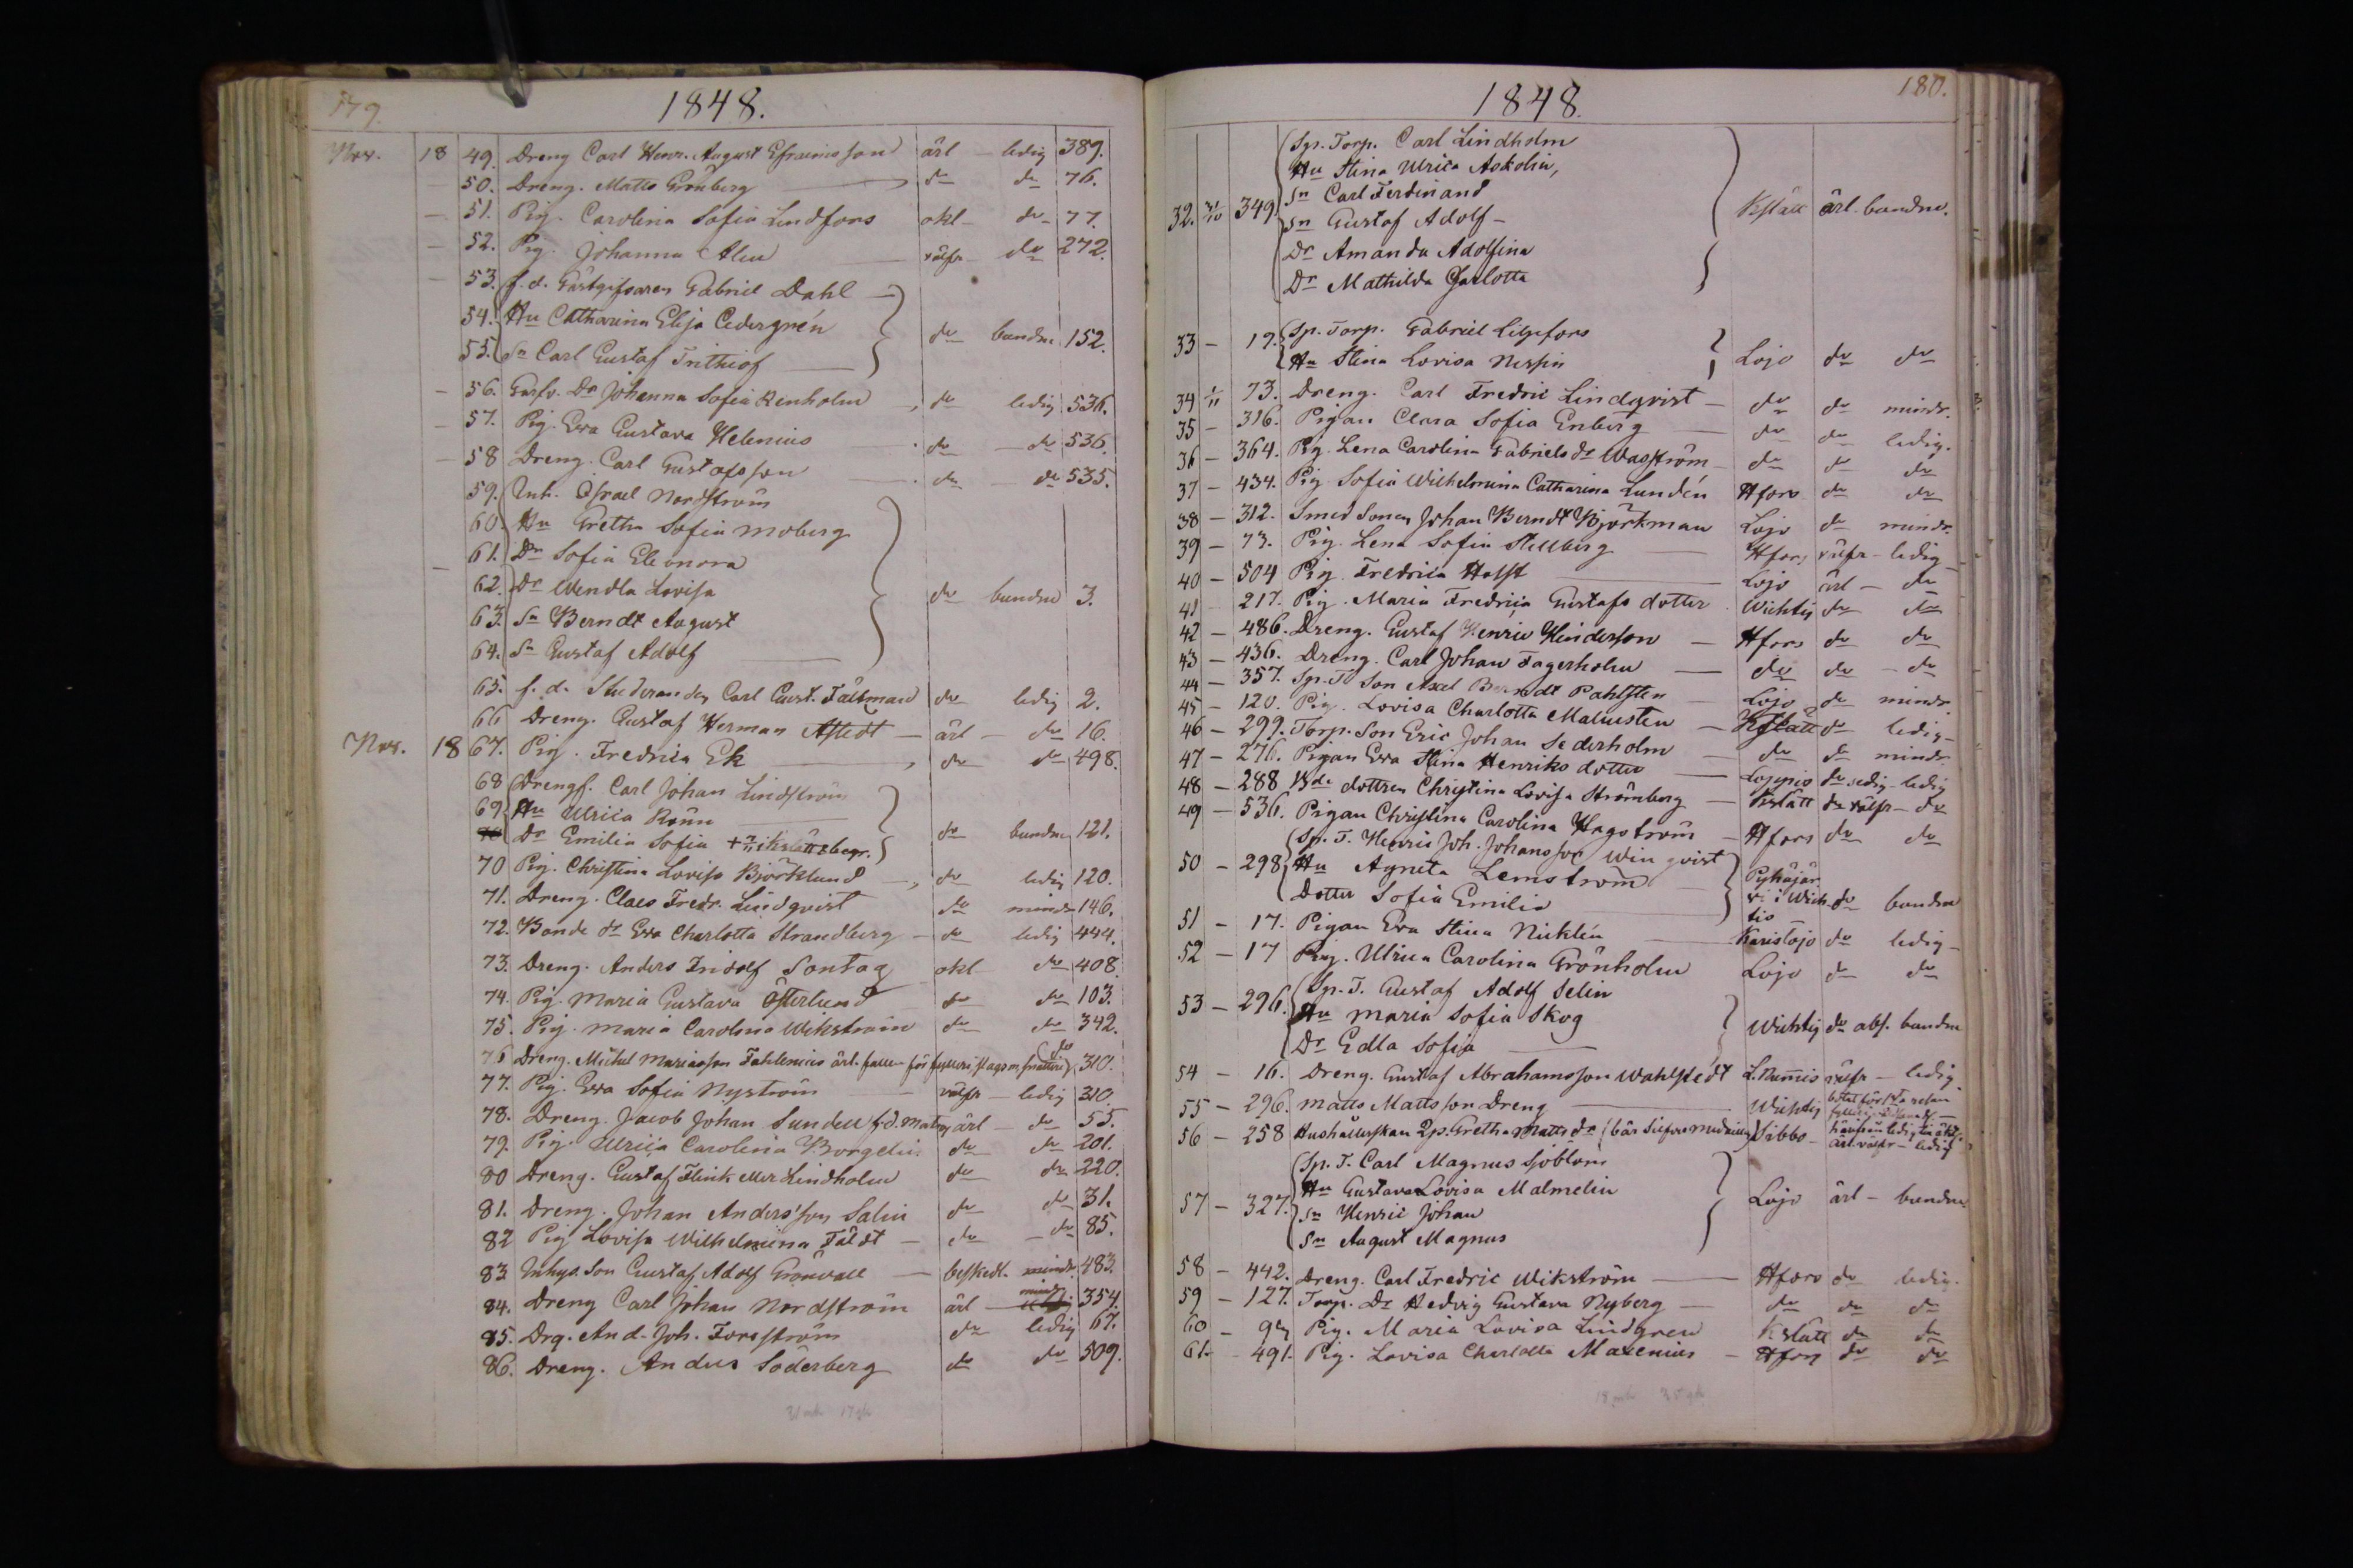 179.
1848.
Nov. 18 49. Dreng Carl Henr. August Efraimsson ärl - ledig 389.
50. Dreng. Matts Grönberg do do 76.
51. Pig. Carolina Sofia Lindfors okl - do 77.
52. Pig. Johanna Alen välfr do 272.
53. f. d. Gästgifvaren Gabriel Dahl
54. Hu Catharina Elisa Cedergrén do bunden 152.
55. Sn Carl Gustaf Frithiof
56. Garfv. Dr Johanna Sofia Renholm do ledig 536.
57. Pig. Eva Gustava Helenius do - do 536.
58 Dreng. Carl Gustafsson do do 535.
59. Inh. Israel Nordström
60. Hu Gretha Sofia Moberg
61. Dr Sofia Eleonora
62. Dr Wendla Lovisa do bundne 3.
63. Sn Berndt August
64. Sn Gustaf Adolf
65. f. d. Studeranden Carl Gust. Fältman do ledig 2.
66 Dreng. Gustaf Herman Åstedt - ärl - do 16.
Nov. 18 67. Pig. Fredrica Ek do do 498.
68 Drengf. Carl Johan Lindström
69 Hu Ulrica Rönn do bunden 121.
Dr Emilia Sofia + i Kslätt begr.
70 Pig. Christina Lovisa Björklund do ledig 120.
71. Dreng. Claes Fredr. Lindqvist do mindr 146.
72. Bonde dr Eva Charlotta Strandberg - do ledig 444.
73. Dreng. Anders Indolf Sontag okl do 408.
74. Pig. Maria Gustava Österlund do do 103.
75. Pig. Maria Carolina Wikström do do 342.
76 Dreng. Michel Mariasson Fahlenius ärl. fallen för fylleri, slagsm, snatteri do 310.
77. Pig. Eva Sofia Nyström välfr - ledig 310.
78. Dreng. Jacob Johan Sundell f. d. Matros ärl - do 55.
79. Pig. Ulrica Carolina Borgelin do do 201.
80 Dreng. Gustaf Flink eller Lindholm do do 220.
81. Dreng. Johan Andersson Salin do do 31.
82 Pig Lovisa Wilhelmina Fäldt - do - do 85.
83 Inhys. Son Gustaf Adolf Grönvall - beskedl. mindr. 483.
84. Dreng Carl Johan Nordström ärl - mindr 354.
85. Drg. And. Joh. Forsström do ledig 67.
86. Dreng. Anders Söderberg do do 509.
180.
1848
Sp. Torp. Carl Lindholm
Hu Stina Ulrica Askolin,
Sn Carl Ferdinand
32. 31/10 349. Sn Gustaf Adolf - Kslätt ärl. bundne.
Dr Amanda Adolfina
Dr Mathilda Charlotta
33 - 19. Sp. Torp. Gabriel Liljefors
Hu Stina Lovisa Nespin Lojo do do
34 1/11 73. Dreng. Carl Fredric Lindqvist - do do mindr.
35 - 316. Pigan Clara Sofia Enberg do do ledig.
36 - 364. Pig. Lena Carolina Gabriels dr Wasström - do do do
37 - 434. Pig Sofia Wilhelmina Catharina Lundén Hfors do do
38 - 312. Smed Sonen Johan Berndt Björkman Lojo do mindr.
39 - 73. Pig. Lena Sofia Stellberg Hfors välfr - ledig
40 - 504 Pig. Fredrica Holst Lojo ärl - do
41 217. Pig. Maria Fredrica Gustafs dotter Wichtis do do
42 - 486. Dreng. Gustaf Henric Hindersson - Hfors do do
43 - 436. Dreng. Carl Johan Fagerholm - do do - do
44 - 357. Sp. T. Son Axel Berndt Pahlsten - Lojo do mindr.
45 - 120. Pig. Lovisa Charlotta Malmsten - Kslätt do ledig -
46 - 299. Torp. Son Eric Johan Sederholm - do do mindr.
47 - 276. Pigan Eva Stina Henriks dotter - Lojo do ledig
48 - 288 Bde dottren Christina Lovisa Strömberg - Kslätt do välfr - do
49 - 536. Pigan Christina Carolina Hagström - Hfors do do
Sp. T. Henric Joh. Johansson Winqvist
50 - 298 Hu Agneta Lemström Pyhäjär
Dotter Sofia Emilia vi i Wich do bundne
tis
51 - 17. Pigan Eva Stina Nicklén Karislojo do ledig -
52 - 17 Pig. Ulrica Carolina Grönholm Lojo do do
Sp. T. Gustaf Adolf Selin
53 - 296. Hu Maria Sofia Skog Wichtis do abs. bundne
Dr Edla Sofia
54 - 16. Dreng. Gustaf Abrahamsson Wahlstedt L. Nummis välfr - ledig
55 - 296. Matts Mattsson Dreng Wichtis
56 - 258 Hushållerskan Gretha Matts dr (bär Silfvermedaille) Sibbo - ärl. välfr - ledig
Sp. T. Carl Magnus Sjöblom
Hu Gustava Lovisa Malmelin
57 - 327. Sn Henric Johan Lojo ärl - bundne
Sn August Magnus
58 - 442. Dreng. Carl Fredric Wikström Hfors do ledig.
59 - 127. Torp. Dr Hedvig Gustava Nyberg - do do do
60 - 94 Pig. Maria Lovisa Lindgren Kslätt do do
61. - 491. Pig. Lovisa Charlotta Maxenius - Hfors do do